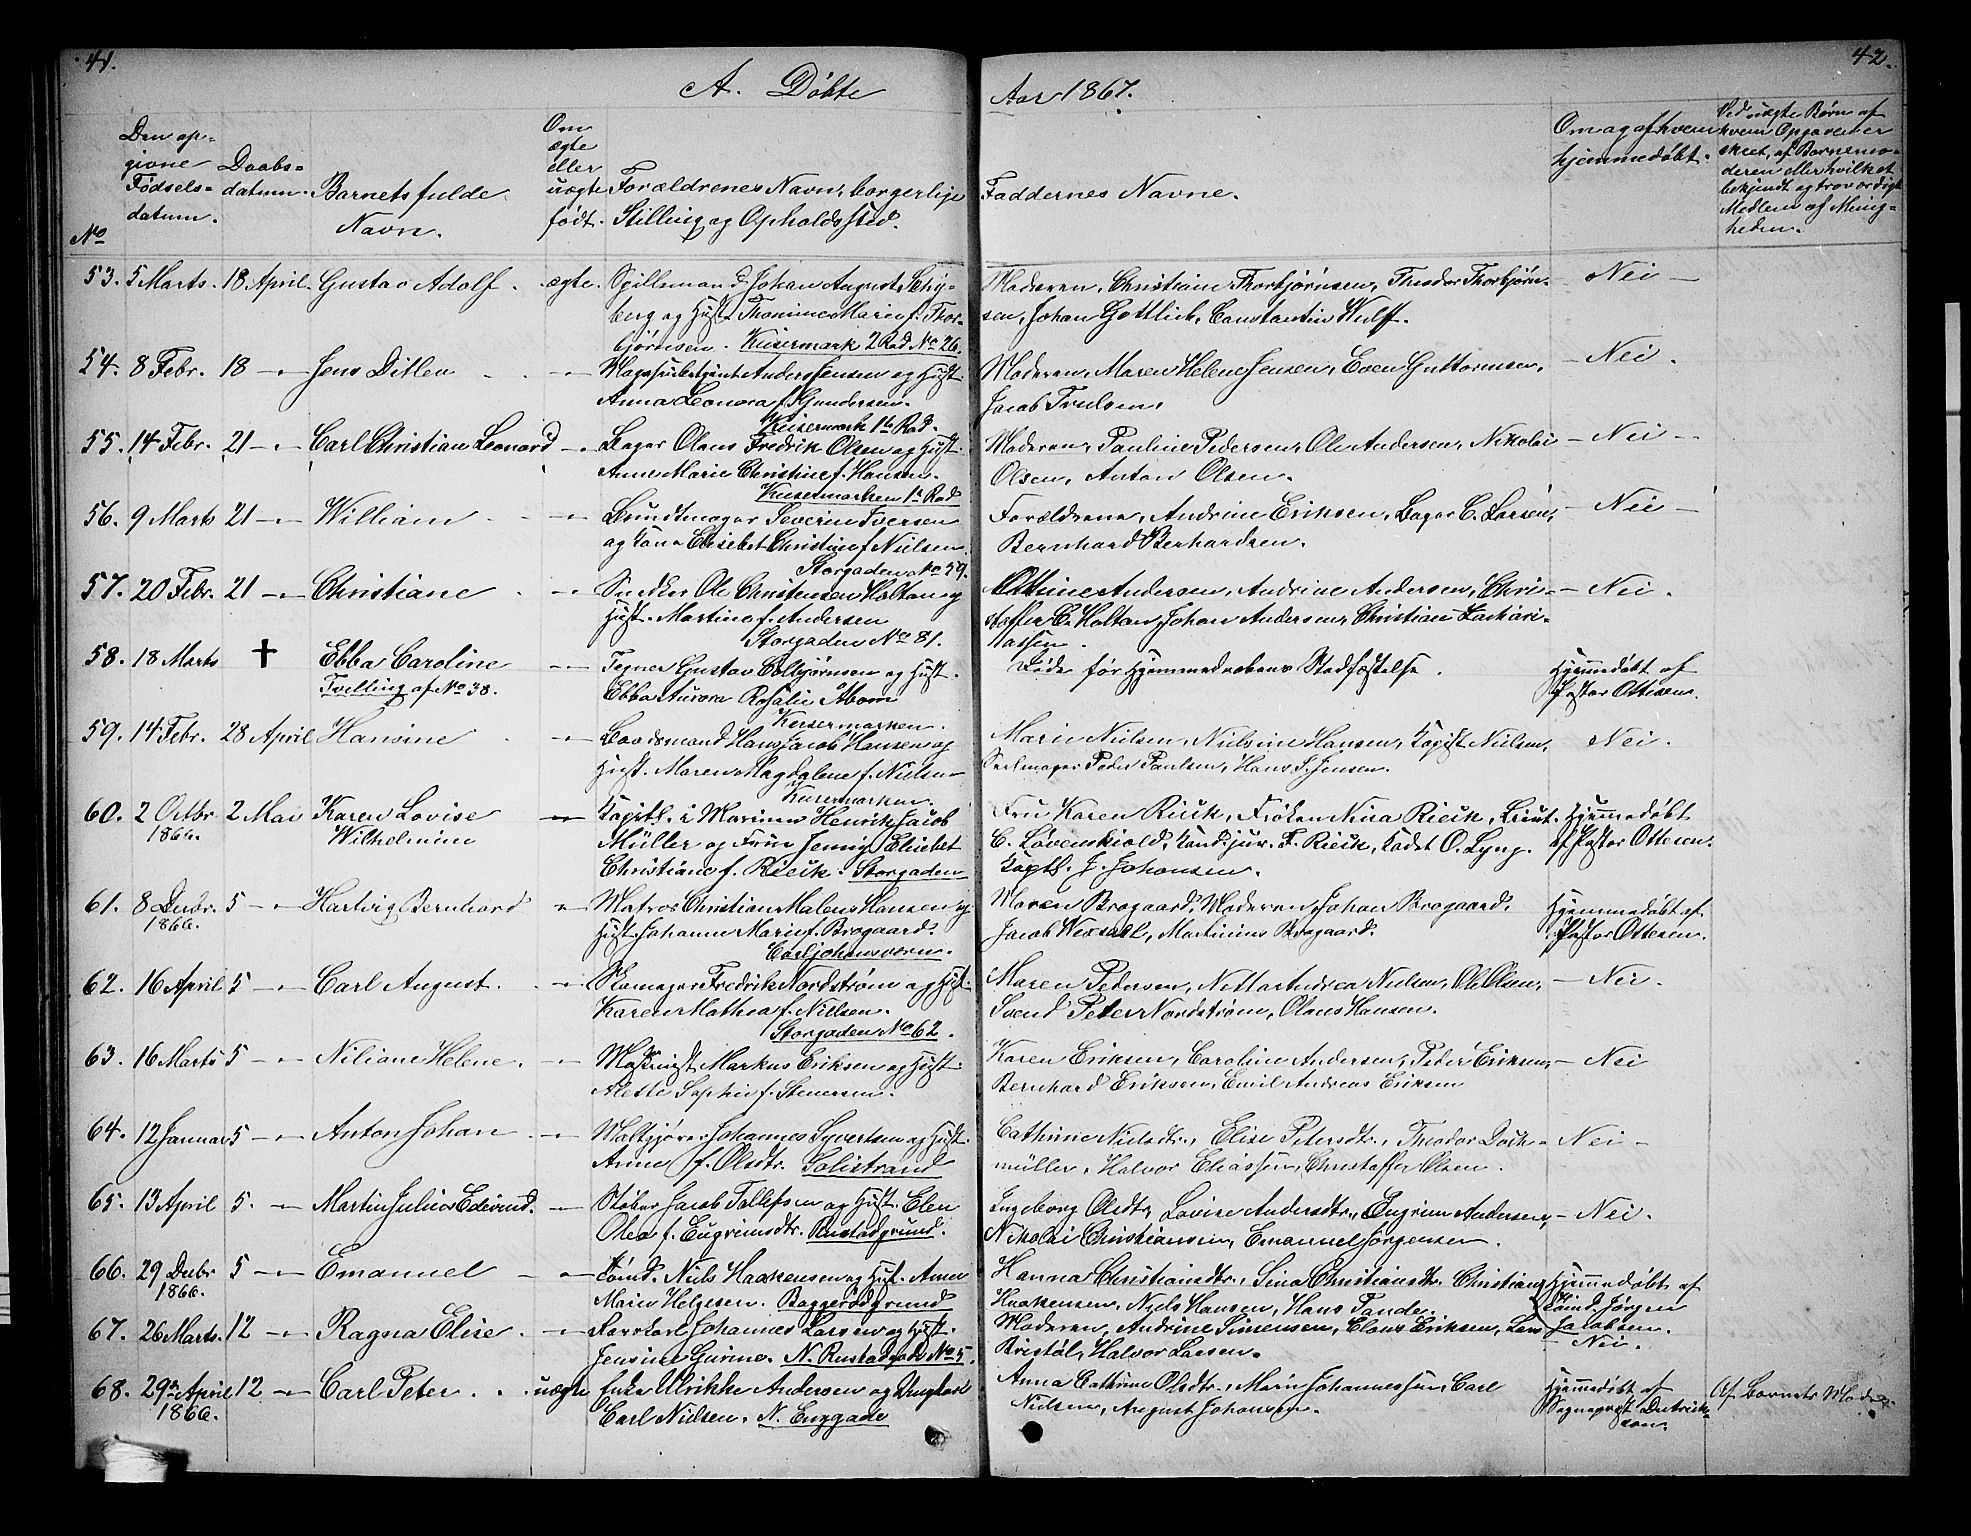 41.
42.
A. Döbte
Aar 1867.
No
Den op-
givne
Fødsels-
datum.
Daabs-
datum.
Barnets fulde
Navn.
Om
ægte
eller
uægte
født.
Forældrenes Navn, borgerlige
Stilling og Opholdssted.
Faddernes Navne.
Om og af hvem
hjemmedøbt.
Ved uægte Børn af
hvem Opgaven er
skeet, af Barnemo-
deren eller hvilket
bekjendt og troværdigt
Medlem af Menig-
heden.
53. 5 Marts. 18 April. Gustav Adolf. ægte. Spillemand Johan August Schy-
berg og Hust. Thomine Marie f. Thor-
bjørnsen. Keisermark 2 Rad No 26.
Moderen, Christiane Thorbjørnsen, Theodor Thorbjørn-
sen, Johan Gottlieb, Constantin Wulff.
Nei –
54. 8 Febr. 18 –"– Jens Ditlev –"– Anders Jensen og Hust.
Anna Leonora f. Gundersen.
Keisermark 1te Rad.
Moderen, Maren Helene Jensen, Even Guttormsen,
Jacob Trulsen.
– Nei.
55. 14 Febr. 21 –"– Carl Christian Leonard –"– Bager Olaus Fredrik Olsen og Hust.
Anne Marie Christine f. Hansen.
Keisermarken 1e Rad
Moderen, Pauline Pedersen, Ole Andersen, Nikolai
Olsen, Anton Olsen.
– Nei –
56. 9 Marts 21 –"– William –"– Bundtmager Severin Iversen
og Kone Elisebet Christine f. Nielsen.
Storgaden No 59.
Forældrene, Andrine Eriksen, Bager C. Larsen,
Bernhard Berhardsen.
– Nei –
57. 20 Febr. 21 –"– Christiane –"– Snedker Ole Christensen Holtan og
Hust. Martine f. Andersen
Storgaden No 81.
Othine Andersen, Andrine Andersen, Chri-
stoffer C. Holtan, Johan Andersen, Christian Zachari-
assen.
– Nei.
58. 18 Marts † Ebba Caroline –"– Tegner Gustav Colbjørnsen og Hust.
Tvilling af No 38.
Ebba Aurora Rosalie Åbom
Keisermarken.
Døde før Hjemmedaabens Stadfæstelse.
Hjemmedøbt af
Pastor Ottesen.
59. 14 Febr. 28 April Hansine –"– Baadsmand Hans Jacob Hansen og
Hust. Maren Magdalene f. Nielsen
Keisermarken.
Marie Nielsen, Nielsine Hansen, Kapt. Nielsen,
Seilmager Peder Paulsen, Hans J. Jensen.
Nei.
60. 2 Octbr 2 Mai Karen Lovise
1866. Wilhelmine
–"– Captl. i Marinen Henrik Jacob
Müller og Frue Jenny Elisebet
Christiane f. Rieck. Storgaden
Fru Karen Rieck, Frøken Nina Rieck, Lieut.
C. Løvenskiold, Kand. jur. F. Rieck, Kadet O. Lyng.
Captl. J. Johansen.
Hjemmedøbt
af Pastor Ottesen.
61. 8 Decbr. 5 –"– Hartvig Bernhard –"– Matros Christian Malenus Hansen og
1866.
Hust. Johanne Marie f. Brogaard.
Carljohansværn.
Maren Brogaard, Moderen, Johan Brogaard,
Jacob Wexsall, Martinius Brogaard.
Hjemmedøbt af
Pastor Ottesen.
62. 16 April 5 –"– Carl August. –"– Skomager Fredrik Nordstrøm og Hust.
Karen Mathea f. Nielsen.
Storgaden No 62.
Maren Pedersen, Netta Andrea Nielsen, Ole Olsen,
Svend Peter Nordstrøm, Olaus Hansen.
– Nei.
63. 16 Marts 5 –"– Niliane Helene. –"– Maskinist Markus Eriksen og Hust.
Alette Sophie f. Stenersen.
Karen Eriksen, Caroline Andersen, Peder Eriksen,
Bernhard Eriksen, Emil Andreas Eriksen
– Nei
64. 12 Januar 5 –"– Anton Johan –"– Maltgjører Johannes Syvertsen og Hust.
Anne f. Olsdtr. Solistrand
Cathrine Nielsdtr., Elise Petersdtr., Theodor Dock-
müller, Halvor Eliassen, Christoffer Olsen.
– Nei –
65. 13 April 5. –"– Martin Julius Edevind. –"– Støber Jacob Tollefsen og Hust. Elen
Olea f. Eugrimsdtr. Rustadgrund.
Ingeborg Olsdtr, Lovise Andersdtr., Eugrim Andersen,
Nikolai Christiansen, Emanuel Jørgensen.
– Nei.
66. 29 Decbr 5 –"– Emanuel –"– Tømd. Niels Haakensen og Hust. Anne
1866.
Maria Helgesen. Baggerødgrund
Hanna Christiansdtr., Sina Christiansdtr. Christian
Haakensen, Niels Hansen, Hans Tande.
Hjemmedøbt af
Tømd. Jørgen
Jacobsen.
67. 26 Marts. 12 –"– Ragna Elise. –"– Johannes Larsen og Hust.
Jensine Gurine. N. Rustadgade No 5.
Moderen, Andrine Simensen, Claus Eriksen, Lars
Bristol, Halvor Larsen.
– Nei.
68. 29de April 12 –"– Carl Peter. uægte Enke Ulrikke Andersen og Ungkarl
1866.
Carl Nielsen. N. Enggade
Anna Cathrine Olsdtr., Marie Johannessen, Carl
Nielsen, August Johansen.
Hjemmedøbt af
Sogneprest Dietrich-
son.
Af Barnets Moder.